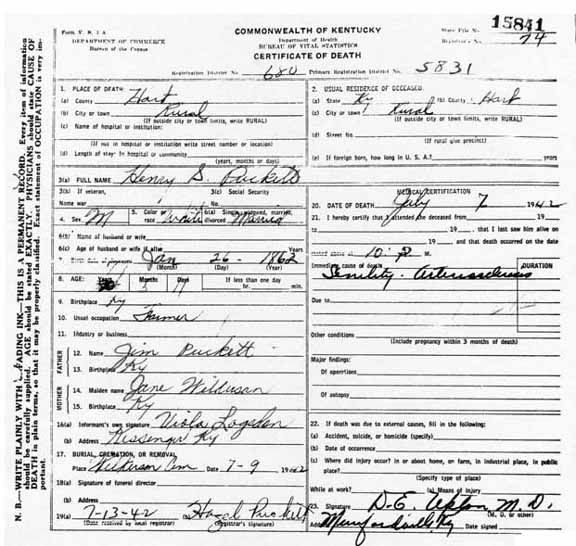 Form V. S. 1 A
DEPARTMENT OF COMMERCE
Bureau of the Census
COMMONWEALTH OF KENTUCKY
Department of Health
BUREAU OF VITAL STATISTICS
CERTIFICATE OF DEATH
State File No. 15841
Registrar's No. 74
Registration District No. 680 Primary Registration District No. 5831
1. PLACE OF DEATH:
(a) County Hart
(b) City or town Rural
(If outside city or town limits, write RURAL)
(c) Name of hospital or institution:
(If not in hospital or institution write street number or location)
(d) Length of stay: In hospital or community
(years, months or days)
2. USUAL RESIDENCE OF DECEASED:
(a) State Ky (b) County Hart
(c) City or town Rural
(If outside city or town limits, write RURAL)
(d) Street No.
(If rural give precinct)
(e) If foreign born, how long in U. S. A.? years
3(a) FULL NAME Henry S. Puckett
3(b) If veteran,
Name war
3(c) Social Security
No.
4. Sex M 5. Color or race White 6(a) Single, widowed, married, divorced Married
6(b) Name of husband or wife
6(c) Age of husband or wife if alive Years
7. Birth date of deceased Jan 26 - 1862
(Month) (Day) (Year)
8. AGE: Years Months Days If less than one day
5 11 hr. min.
9. Birthplace Ky
10. Usual occupation Farmer
11. Industry or business
FATHER
12. Name Jim Puckett
13. Birthplace Ky
MOTHER
14. Maiden name Jane Wilkerson
15. Birthplace Ky
16(a) Informant's own signature Viola Logsdon
(b) Address Kessenger Ky
17. BURIAL, CREMATION, OR REMOVAL
Place Wilkerson Cem Date 7-9 1942
18(a) Signature of funeral director
(b) Address
19(a) 7-13-42 Hazel Puckett
(Date received by local registrar) (Registrar's signature)
MEDICAL CERTIFICATION
20. DATE OF DEATH July 7 1942
21. I hereby certify that I attended the deceased from 19
to 19 , that I last saw him alive on
19 and that death occurred on the date
stated above at 10 P M.
Immediate cause of death DURATION
Senility - Arteriosclerosis
Due to
Other conditions
(Include pregnancy within 3 months of death)
Major findings:
Of operations
Of autopsy
22. If death was due to external causes, fill in the following:
(a) Accident, suicide, or homicide (specify)
(b) Date of occurrence
(c) Where did injury occur? In or about home, on farm, in industrial place, in public
place?
(Specify type of place)
While at work? (e) Means of injury
23. Signature D. E. Upton M. D.
(M. D. or other)
Address Munfordville Ky Date signed
N. B.—WRITE PLAINLY WITH UNFADING INK—THIS IS A PERMANENT RECORD. Every item of information
should be carefully supplied. AGE should be stated EXACTLY. PHYSICIANS should state CAUSE OF
DEATH in plain terms, so that it may be properly classified. Exact statement of OCCUPATION is very im-
portant.